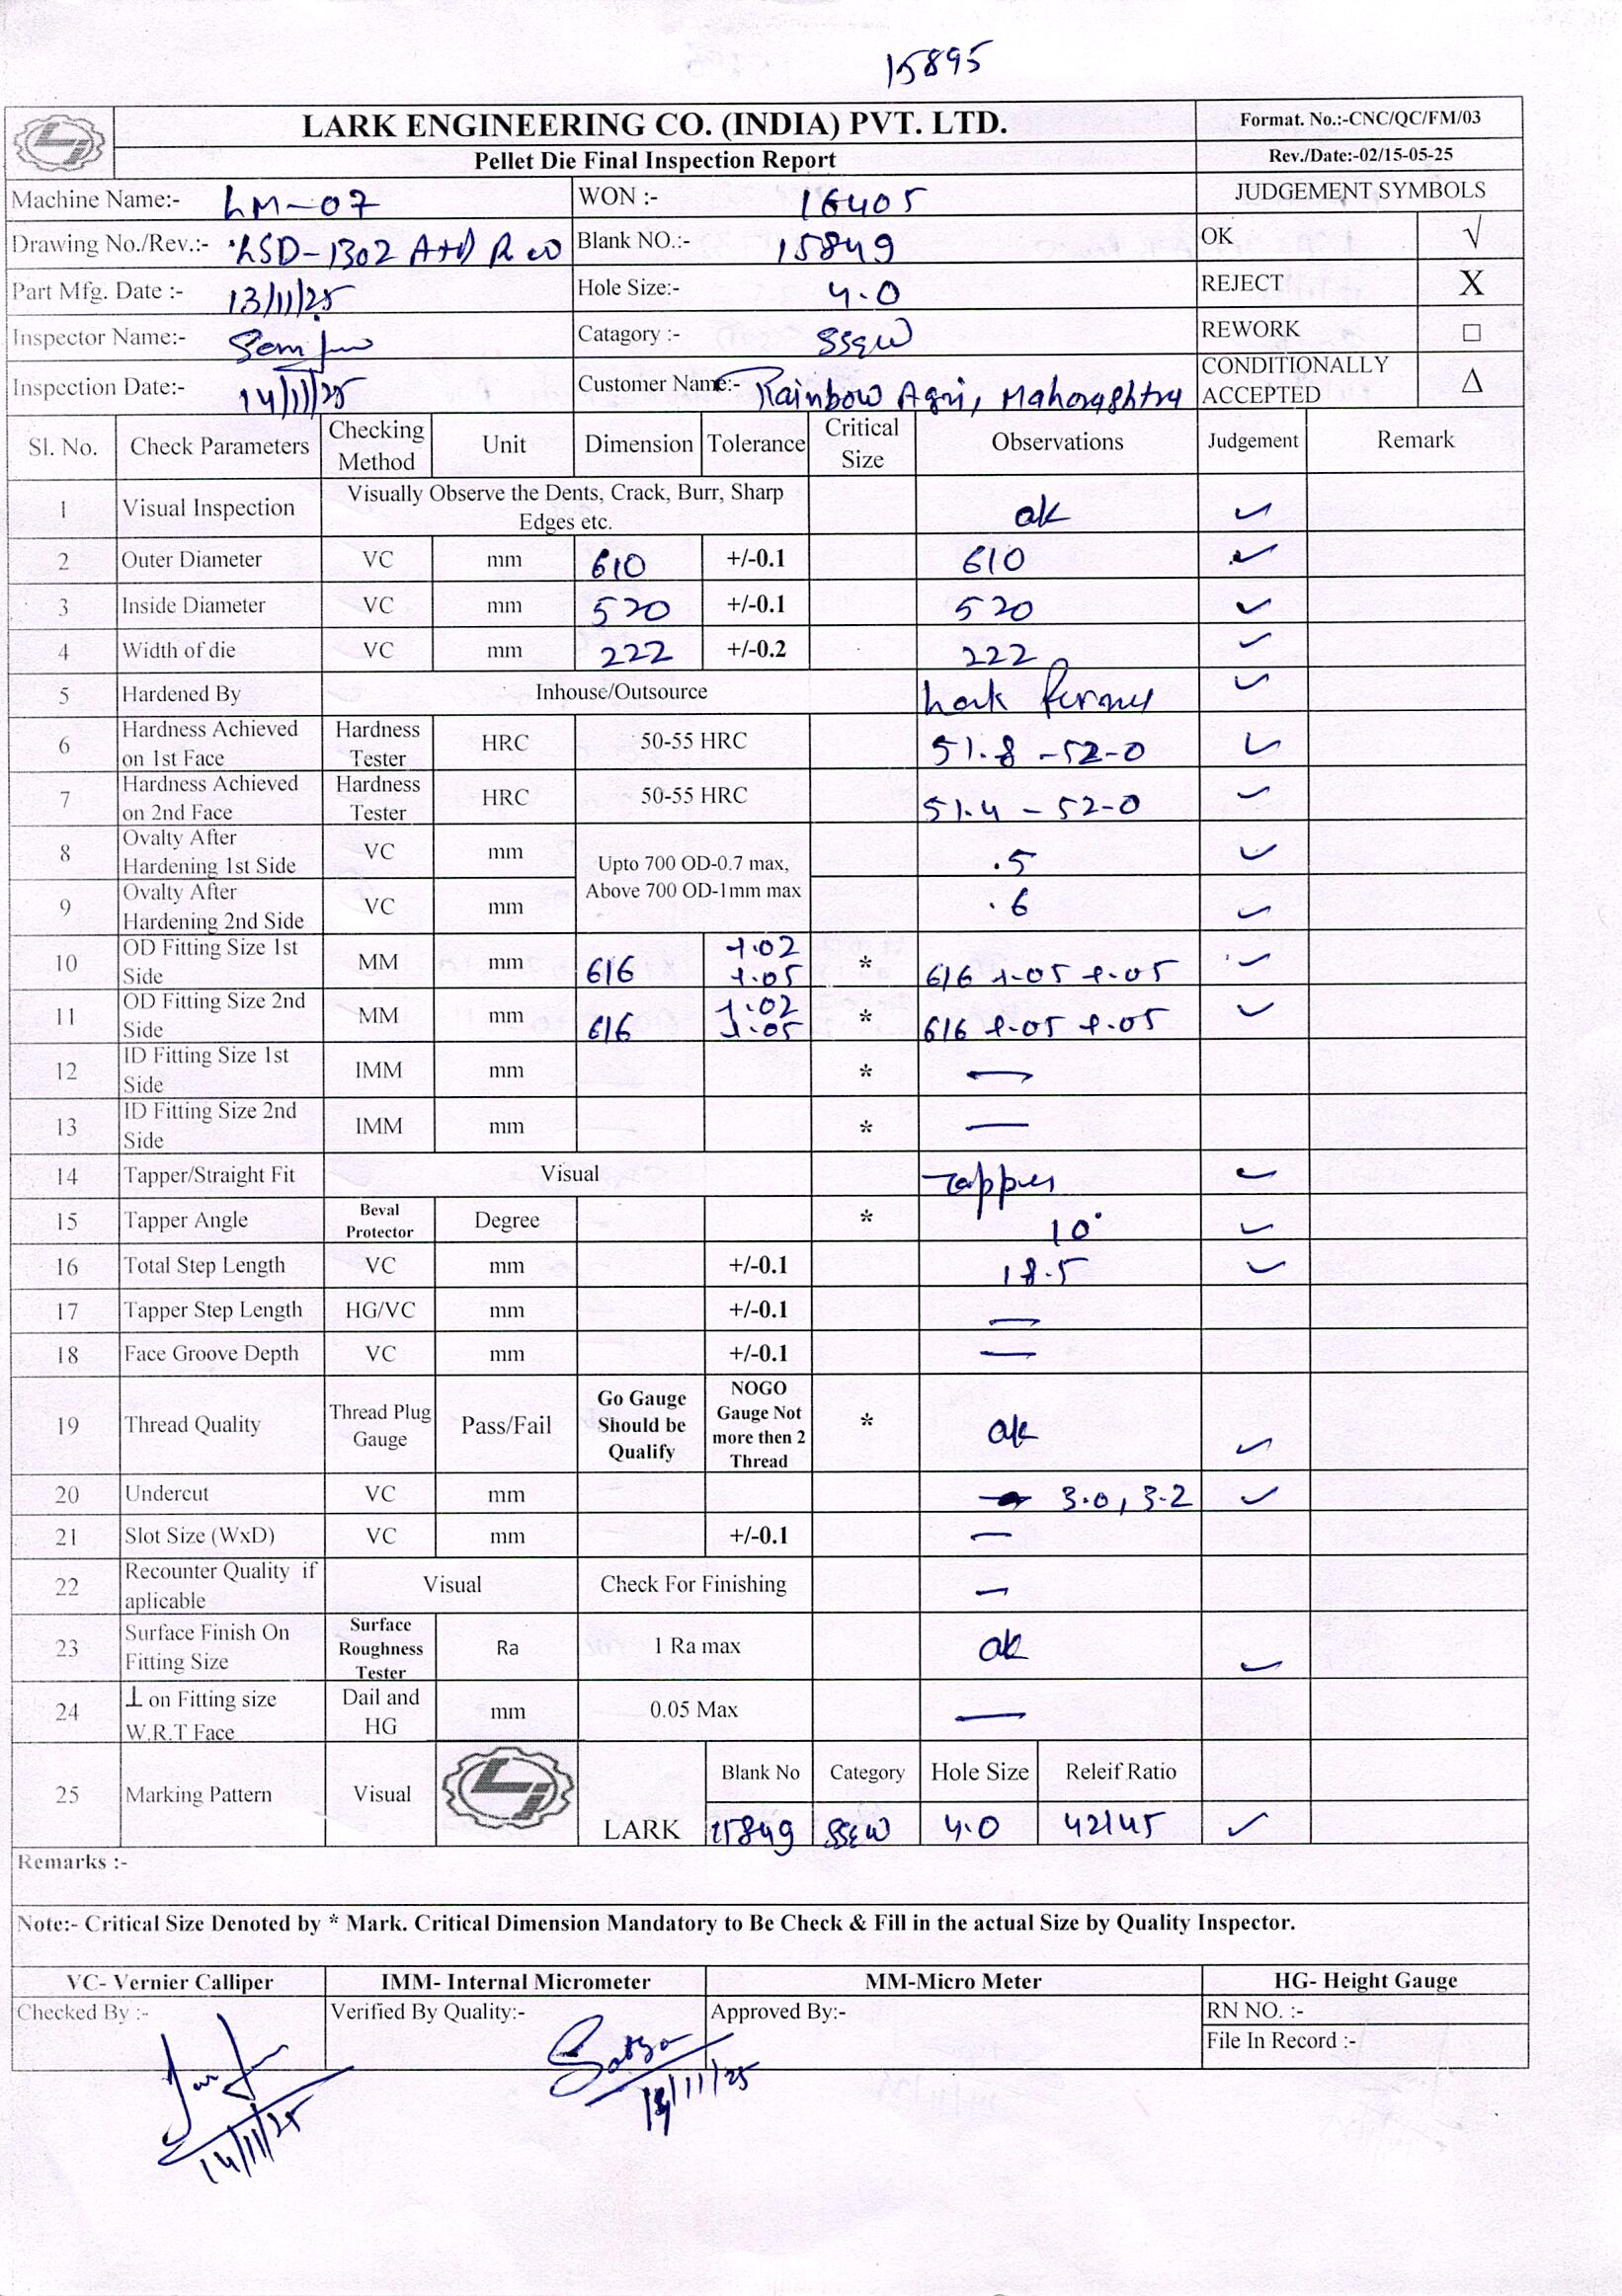 15895
LARK ENGINEERING CO. (INDIA) PVT. LTD.
Format. No.:-CNC/QC/FM/03
Pellet Die Final Inspection Report
Rev./Date:-02/15-05-25
Machine Name:- LM-07 WON :- 16405 JUDGEMENT SYMBOLS
Drawing No./Rev.:- LSD-1302 Blank NO.:- 15849 OK √
Part Mfg. Date :- 13/11/25 Hole Size:- 4.0 REJECT X
Inspector Name:- Catagory :- SSEW REWORK □
Inspection Date:- 14/11/25 Customer Name:- Rainbow Agri, Maharashtra CONDITIONALLY ACCEPTED Δ
Sl. No. Check Parameters Checking Method Unit Dimension Tolerance Critical Size Observations Judgement Remark
1 Visual Inspection Visually Observe the Dents, Crack, Burr, Sharp Edges etc. ok ✓
2 Outer Diameter VC mm 610 +/-0.1 610 ✓
3 Inside Diameter VC mm 520 +/-0.1 520 ✓
4 Width of die VC mm 222 +/-0.2 222 ✓
5 Hardened By Inhouse/Outsource Lark ✓
6 Hardness Achieved on 1st Face Hardness Tester HRC 50-55 HRC 51.8 -52-0 ✓
7 Hardness Achieved on 2nd Face Hardness Tester HRC 50-55 HRC 51.4 - 52-0 ✓
8 Ovalty After Hardening 1st Side VC mm Upto 700 OD-0.7 max, Above 700 OD-1mm max .5 ✓
9 Ovalty After Hardening 2nd Side VC mm .6 ✓
10 OD Fitting Size 1st Side MM mm 616 +.02 +.05 * 616 +.05 +.05 ✓
11 OD Fitting Size 2nd Side MM mm 616 +.02 +.05 * 616 +.05 +.05 ✓
12 ID Fitting Size 1st Side IMM mm * —
13 ID Fitting Size 2nd Side IMM mm * —
14 Tapper/Straight Fit Visual Tapper ✓
15 Tapper Angle Beval Protector Degree * 10° ✓
16 Total Step Length VC mm +/-0.1 18.5 ✓
17 Tapper Step Length HG/VC mm +/-0.1 —
18 Face Groove Depth VC mm +/-0.1 —
19 Thread Quality Thread Plug Gauge Pass/Fail Go Gauge Should be Qualify NOGO Gauge Not more then 2 Thread * ok ✓
20 Undercut VC mm 3.0, 3.2 ✓
21 Slot Size (WxD) VC mm +/-0.1 —
22 Recounter Quality if aplicable Visual Check For Finishing —
23 Surface Finish On Fitting Size Surface Roughness Tester Ra 1 Ra max ok ✓
24 ⊥ on Fitting size W.R.T Face Dail and HG mm 0.05 Max —
25 Marking Pattern Visual LARK Blank No Category Hole Size Releif Ratio
15849 SSEW 4.0 42/45 ✓
Remarks :-
Note:- Critical Size Denoted by * Mark. Critical Dimension Mandatory to Be Check & Fill in the actual Size by Quality Inspector.
VC- Vernier Calliper IMM- Internal Micrometer MM-Micro Meter HG- Height Gauge
Checked By :- Verified By Quality:- Approved By:- RN NO. :-
File In Record :-
14/11/25